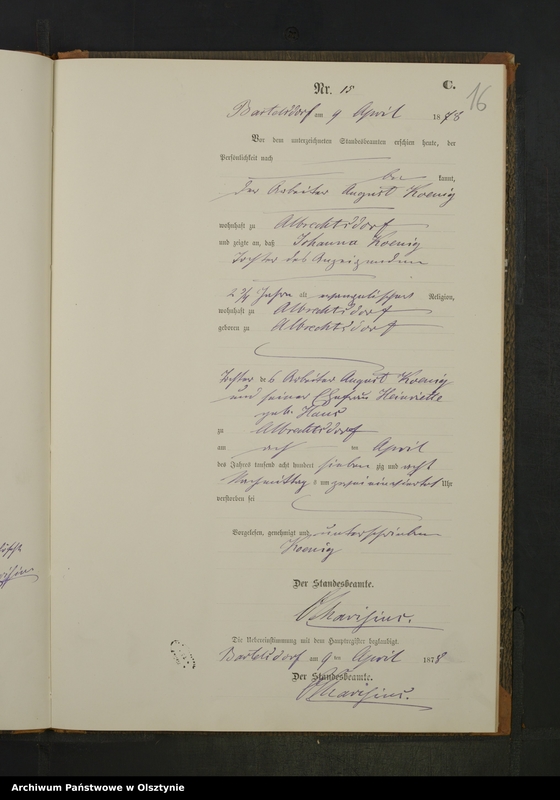 Nr. 15
C.
16
Bartelsdorf am 9 April 1878
Vor dem unterzeichneten Standesbeamten erschien heute, der
Persönlichkeit nach
be kannt,
der Arbeiter August Koenig
wohnhaft zu Albrechtsdorf
und zeigte an, daß Johanna Koenig
Tochter des Anzeigenden
2 3/4 Jahre alt evangelischer Religion,
wohnhaft zu Albrechtsdorf
geboren zu Albrechtsdorf
Tochter des Arbeiter August Koenig
und seiner Ehefrau Heinriette
geb.
zu Albrechtsdorf
am acht ten April
des Jahres tausend acht hundert sieben zig und acht
Nachmittag s um zweieinviertel Uhr
verstorben sei
Vorgelesen, genehmigt und unterschrieben
Koenig
Der Standesbeamte.
Die Uebereinstimmung mit dem Hauptregister beglaubigt.
Bartelsdorf am 9 ten April 1878
Der Standesbeamte.
Archiwum Państwowe w Olsztynie